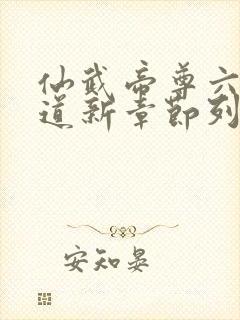 仙武帝尊六
道新章节列
安知晏